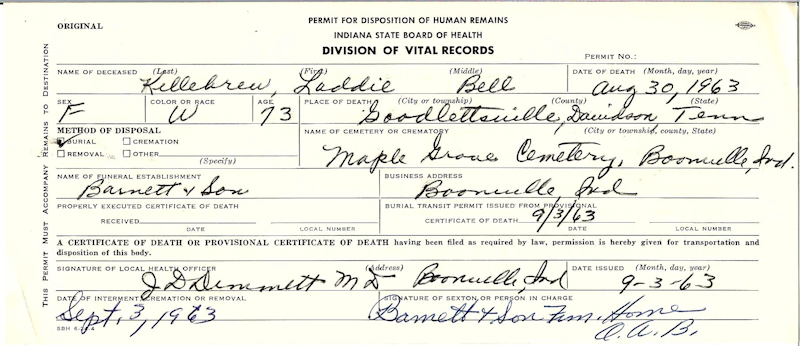 ORIGINAL
PERMIT FOR DISPOSITION OF HUMAN REMAINS
INDIANA STATE BOARD OF HEALTH
DIVISION OF VITAL RECORDS
PERMIT NO.:
THIS PERMIT MUST ACCOMPANY REMAINS TO DESTINATION
NAME OF DECEASED (Last) (First) (Middle) DATE OF DEATH (Month, day, year)
Killebrew, Laddie Bell Aug 30, 1963
SEX COLOR OR RACE AGE PLACE OF DEATH (City or township) (County) (State)
F W 73 Goodlettsville, Davidson, Tenn
METHOD OF DISPOSAL NAME OF CEMETERY OR CREMATORY (City or township, county, State)
BURIAL CREMATION
REMOVAL OTHER (Specify)
Maple Grove Cemetery, Boonville, Ind.
NAME OF FUNERAL ESTABLISHMENT BUSINESS ADDRESS
Barnett & Son Boonville, Ind
PROPERLY EXECUTED CERTIFICATE OF DEATH BURIAL TRANSIT PERMIT ISSUED FROM PROVISIONAL
RECEIVED CERTIFICATE OF DEATH 9/3/63
DATE LOCAL NUMBER DATE LOCAL NUMBER
A CERTIFICATE OF DEATH OR PROVISIONAL CERTIFICATE OF DEATH having been filed as required by law, permission is hereby given for transportation and
disposition of this body.
SIGNATURE OF LOCAL HEALTH OFFICER (Address) DATE ISSUED (Month, day, year)
J D Dimmett M D Boonville, Ind 9-3-63
DATE OF INTERMENT, CREMATION OR REMOVAL SIGNATURE OF SEXTON OR PERSON IN CHARGE
Sept. 3, 1963 Barnett & Son Fun. Home
O.A.B.
SBH